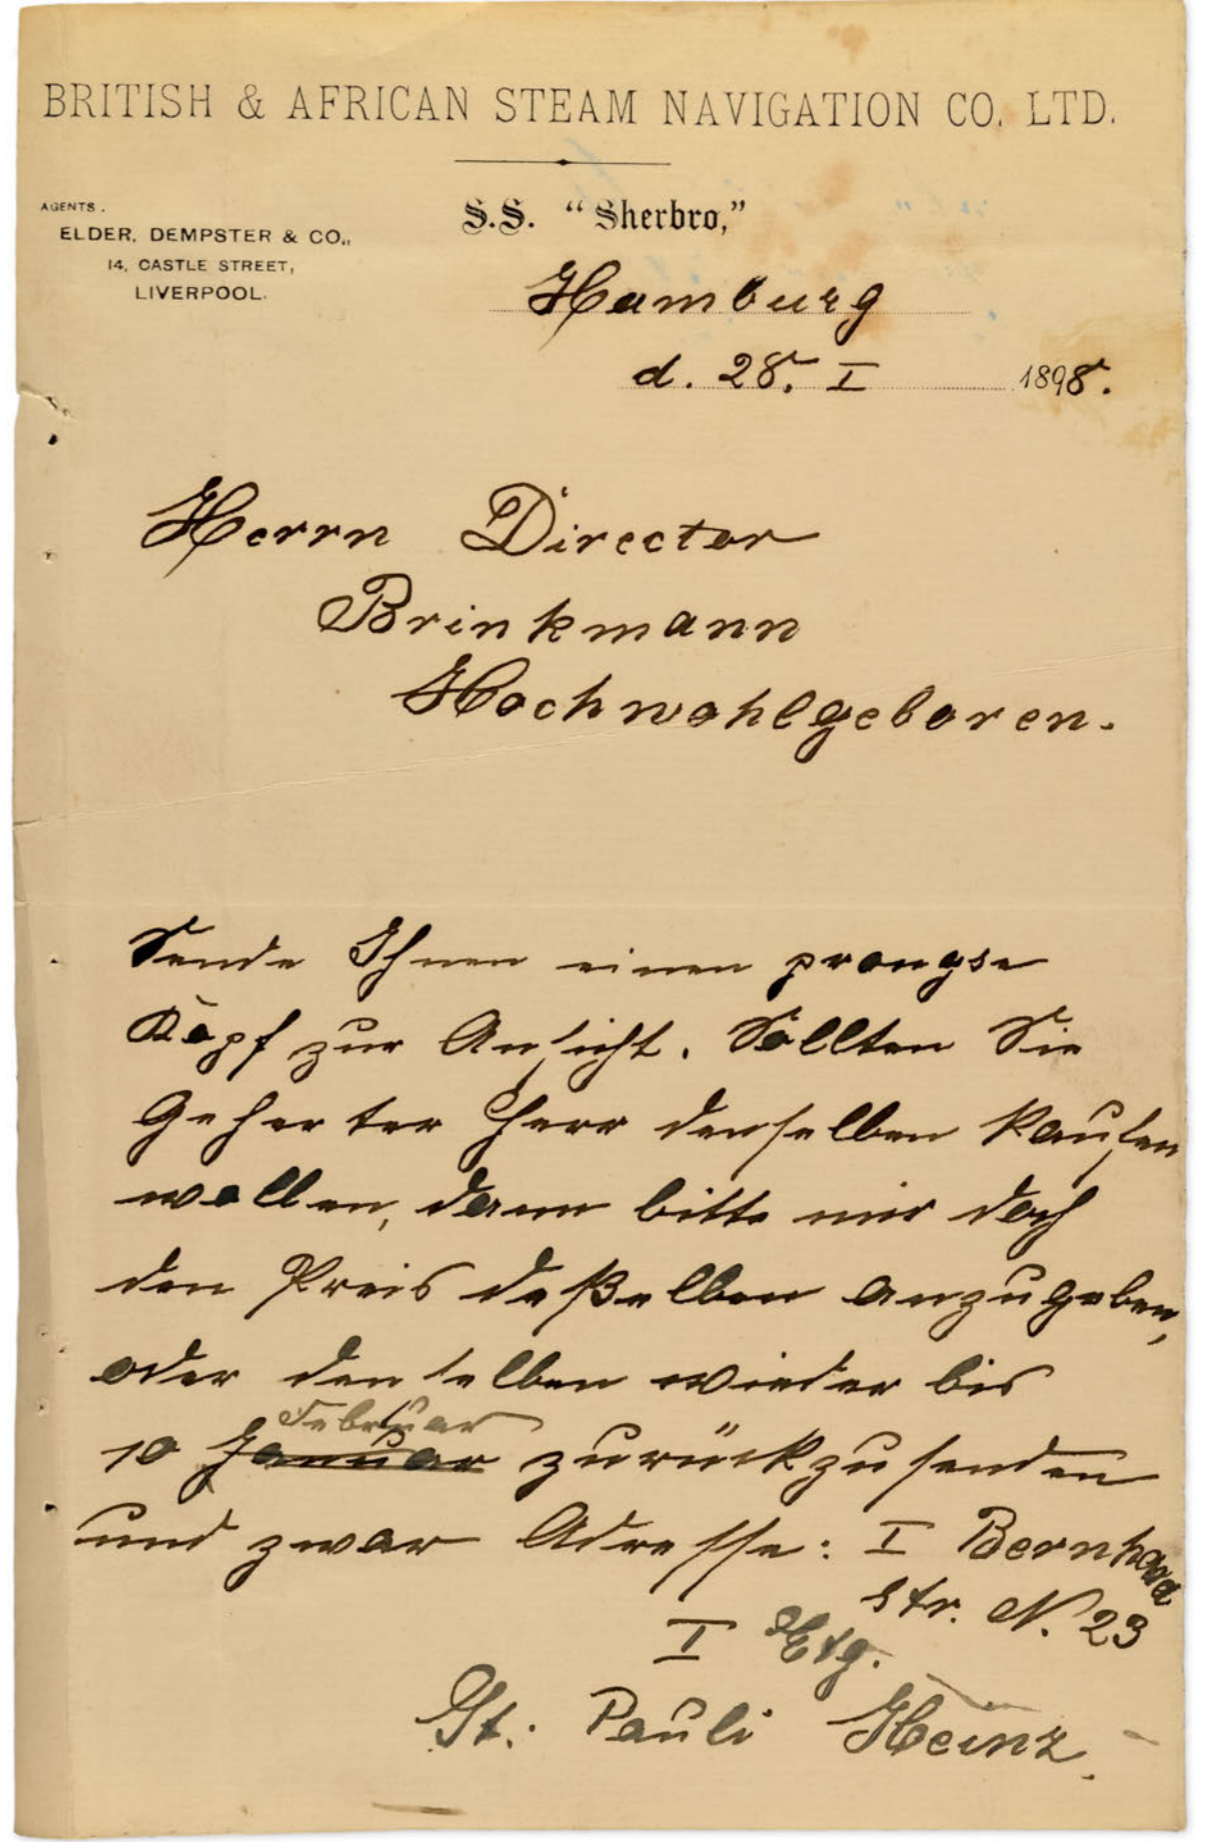 BRITISH & AFRICAN STEAM NAVIGATION CO. LTD.
AGENTS.
ELDER, DEMPSTER & CO.,
14, CASTLE STREET,
LIVERPOOL.
S.S. "Sherbro,"
Hamburg
d. 28. I 1898.
Herrn Director
Brinkmann
Hochwohlgeboren.
Sende Ihnen einen prongse
Kopf zur Ansicht. Sollten Sie
Geherter Herr denselben kaufen
wollen, dann bitte mir doch
den Preis deßelben anzugeben,
oder denselben wieder bis
Februar
10 Januar zurückzusenden
und zwar Adresse: I Bernhard
str. N. 23
I Etg.
St. Pauli Heinz.